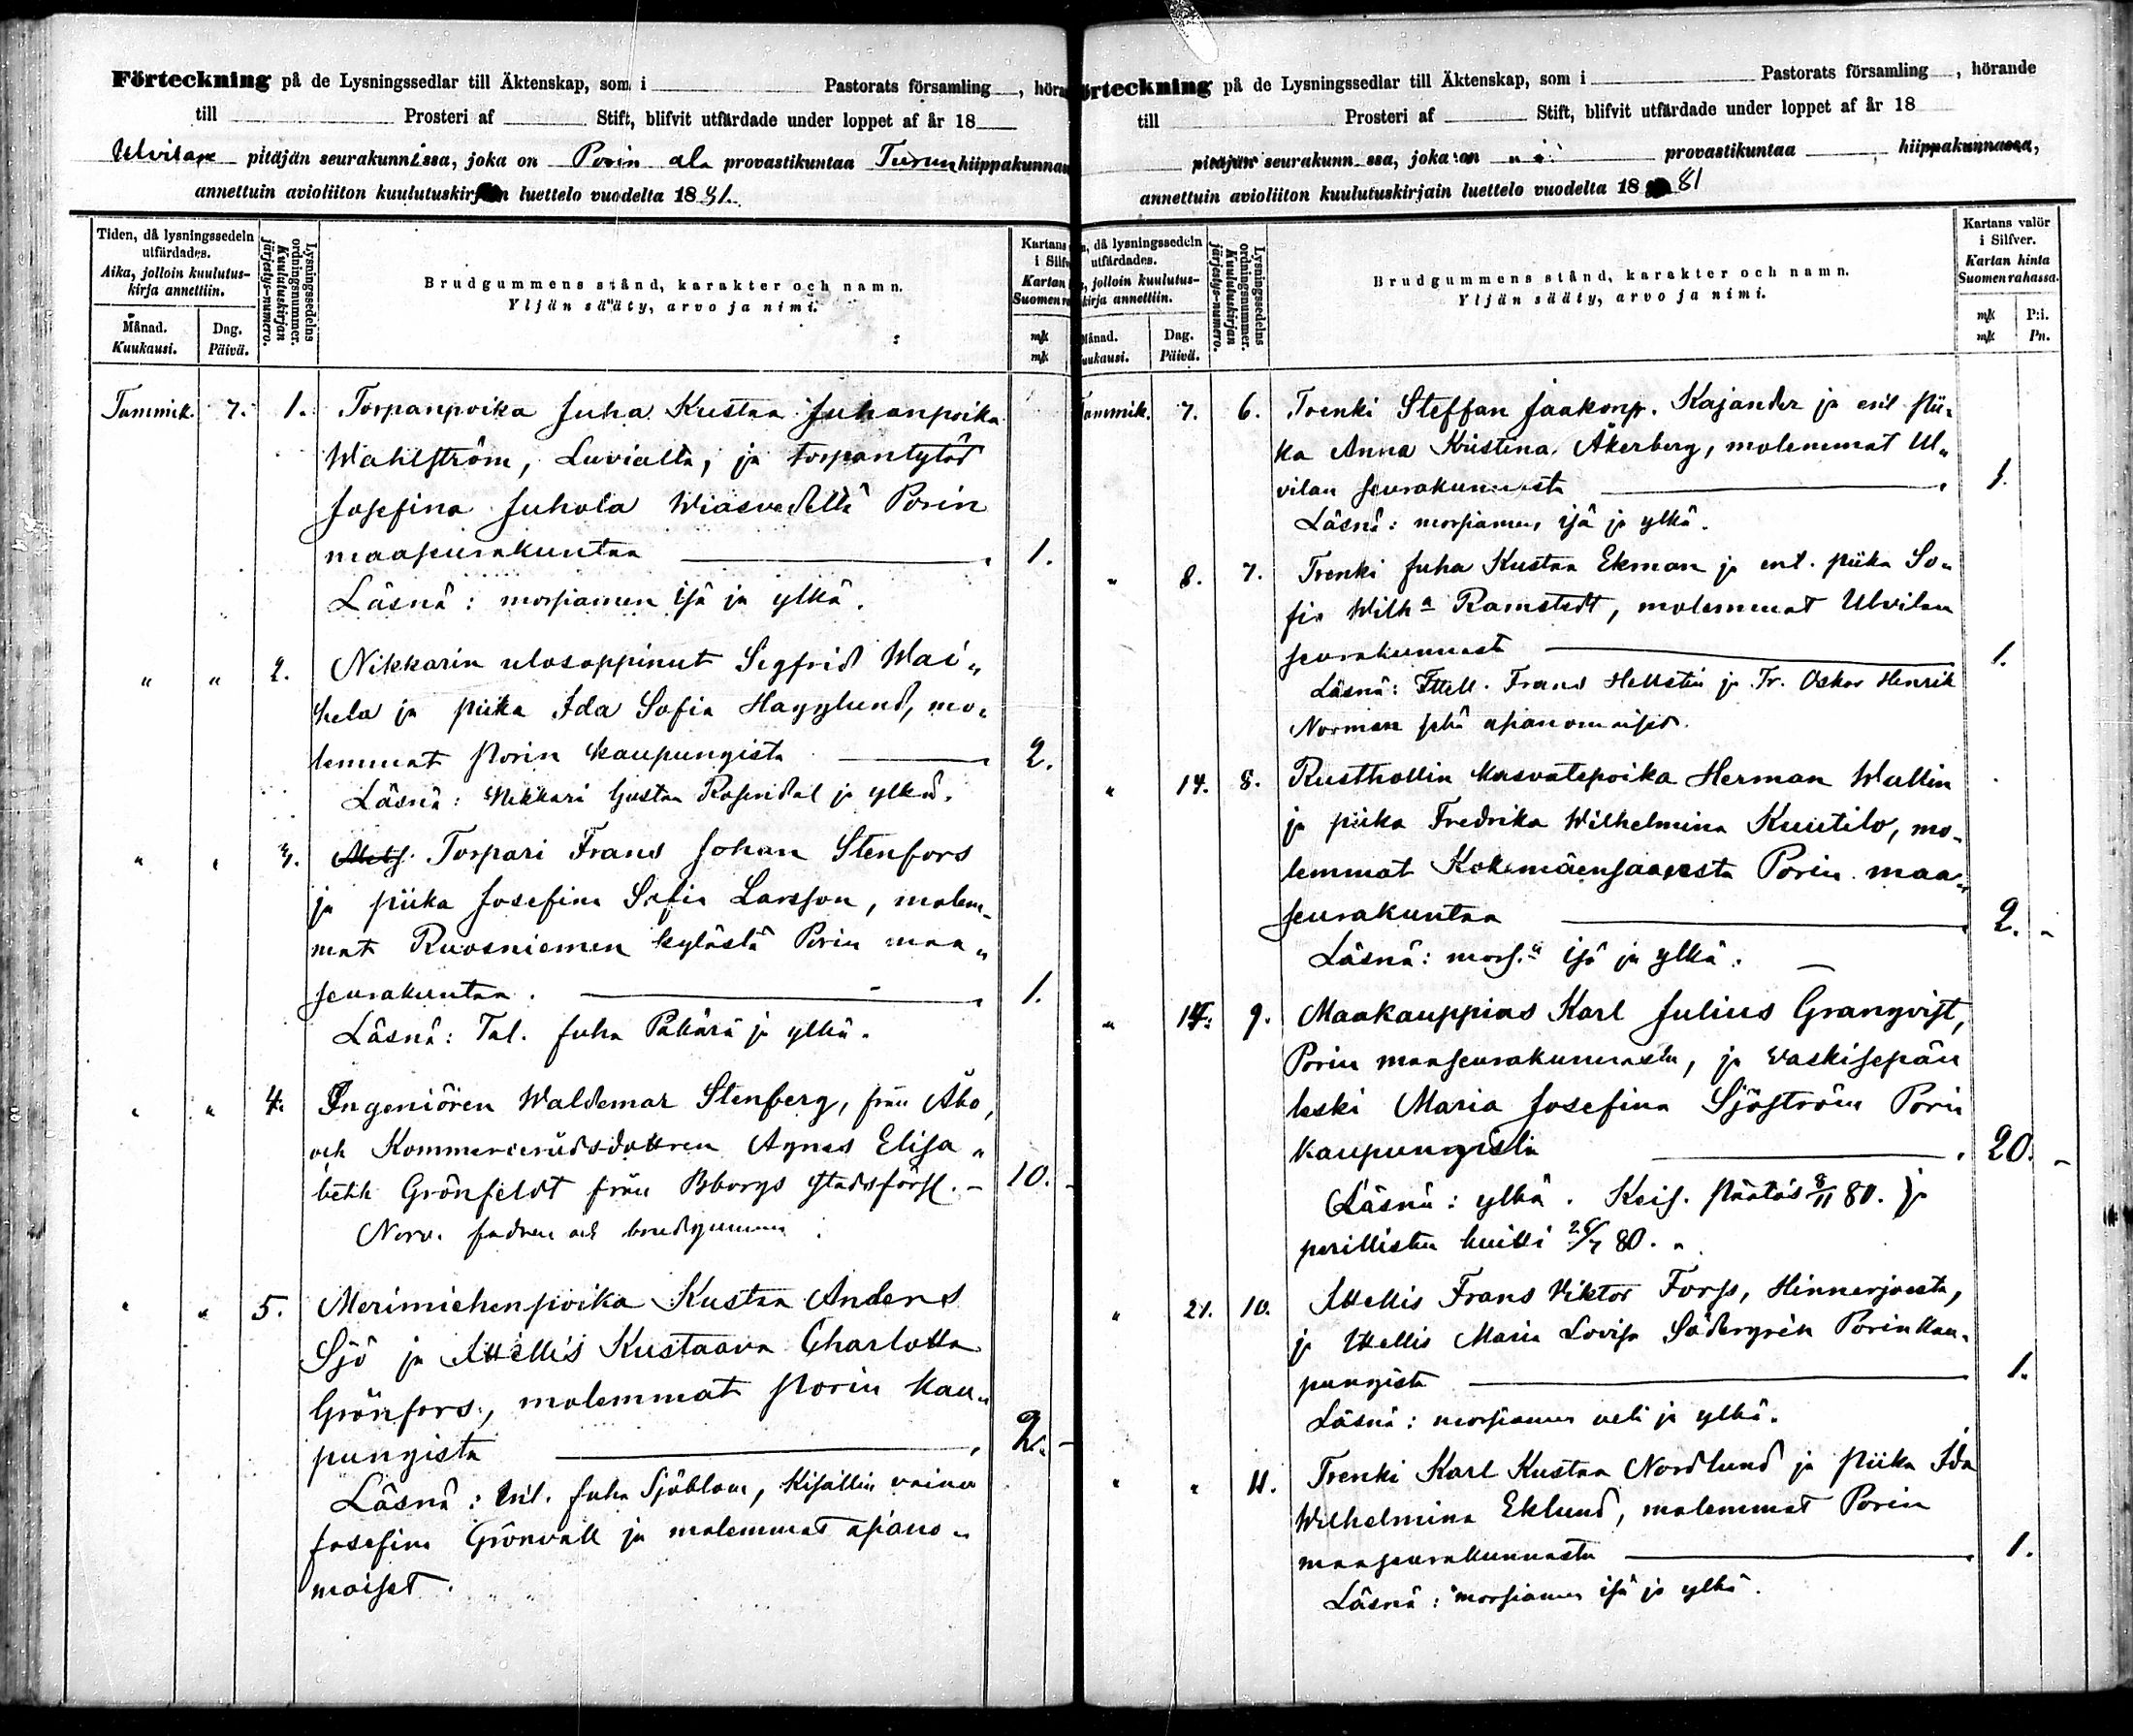 Förteckning på de Lysningssedlar till Äktenskap, som i Pastorats församling, höra
till Prosteri af Stift, blifvit utfärdade under loppet af år 18
Ulvilan pitäjän seurakunnissa, joka on Porin ala provastikuntaa Turun hiippakunnas
annettuin avioliiton kuulutuskirjain luettelo vuodelta 1881.
Tiden, då lysningssedeln
utfärdades.
Aika, jolloin kuulutus-
kirja annettiin.
Månad.
Kuukausi.
Dag.
Päivä.
Lysningssedelns
ordningsnummer.
Kuulutuskirjan
järjestys-numero.
Brudgummens stånd, karakter och namn.
Yljän sääty, arvo ja nimi.
Kartans
i Silfv
Kartan
Suomen ra
mk
mk
Tammik. 7. 1. Torpanpoika Juha Kustaa Juhanpoika
Wahlström, Luvialta, ja torpantytär
Josefina Juhola Wiasvedeltä Porin
maaseurakuntaa 1.
Läsnä: morsiamen isä ja ylkä.
" " 2. Nikkarin ulosoppinut Segfrid Wai„
hela ja piika Ida Sofia Hagglund, mo„
lemmat Porin kaupungista 2.
Läsnä: Nikkari Gustaa Rosendal ja ylkä.
" " 3. Torpari Frans Johan Stenfors
ja piika Josefina Sofia Larsson, molem„
mat Ruosniemen kylästä Porin maa„
seurakuntaa. 1.
Läsnä: Tal. Juha Päkärä ja ylkä.
" " 4. Ingeniören Waldemar Stenberg, från Åbo,
och Kommerserådsdottren Agnes Elisa„
beth Grönfeldt från Bborgs stadsförsl. 10. -
Närv. fadren och brudgummen
" " 5. Merimiehenpoika Kustaa Anders
Sjö ja Ittellis Kustaava Charlotta
Grönfors, molemmat Porin kau„
pungista 2. -
Läsnä: Entl. Juha Sjöblom, Kisällin vaimo
Josefina Grönvall ja molemmat asiano„
maiset.
örteckning på de Lysningssedlar till Äktenskap, som i Pastorats församling, hörande
till Prosteri af Stift, blifvit utfärdade under loppet af år 18
pitäjän seurakunn ssa, joka on provastikuntaa hiippakunnassa,
annettuin avioliiton kuulutuskirjain luettelo vuodelta 18 81
n, då lysningssedeln
utfärdades.
a, jolloin kuulutus-
kirja annettiin.
Månad.
uukausi.
Dag.
Päivä.
Lysningssedelns
ordningsnummer.
Kuulutuskirjan
järjestys-numero.
Brudgummens stånd, karakter och namn.
Yljän sääty, arvo ja nimi.
Kartans valör
i Silfver.
Kartan hinta
Suomen rahassa.
mk P:i.
mk Pn.
Tammik. 7. 6. Trenki Steffan Jaakonp. Kajander ja entl pii„
ka Anna Kristina Åkerberg, molemmat Ul„
vilan seurakunnasta 1.
Läsnä: morsiamen isä ja ylkä.
" 8. 7. Trenki Juha Kustaa Ekman ja entl. piika So„
fia Wilh:a Ramstedt, molemmat Ulvilan
seurakunnasta 1.
Läsnä: Ittell. Frans Hellstén ja Tr. Oskar Henrik
Norman sekä asianomaiset.
" 14. 8. Rusthollin kasvatepoika Herman Wallin
ja piika Fredrika Wilhelmina Kuutilo, mo„
lemmat Kokemäensaaresta Porin maa„
seurakuntaa 2. -
Läsnä: mors:n isä ja ylkä.
" 14. 9. Maakauppias Karl Julius Granqvist,
Porin maaseurakunnasta, ja vaskisepän
leski Maria Josefina Sjöström Porin
kaupungista 20. -
Läsnä: ylkä. Keis. päätös 8/11 80. ja
perillisten kuitti 26/7 80.
" 21. 10. Ittellis Frans Viktor Forss, Hinnerjoesta,
ja Ittellis Maria Lovisa Södergrén Porin kau„
pungista 1.
Läsnä: morsiamen veli ja ylkä.
" " 11. Trenki Karl Kustaa Nordlund ja piika Ida
Wilhelmina Eklund, molemmat Porin
maaseurakunnasta 1.
Läsnä: morsiamen isä ja ylkä.